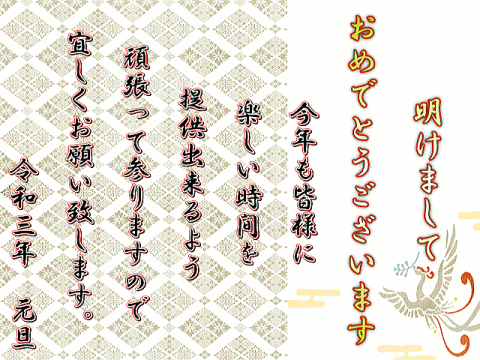 明けまして
おめでとうございます
今年も皆様に
楽しい時間を
提供出来るよう
頑張って参りますので
宜しくお願い致します。
令和三年 元旦